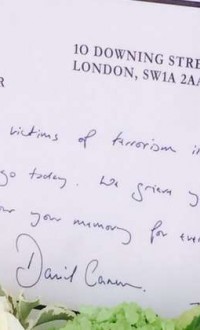 10 DOWNING STRE
LONDON, SW1A 2AA
R
victims of terrorism i
go today. We grieve y
our your memory for eve
David Camer